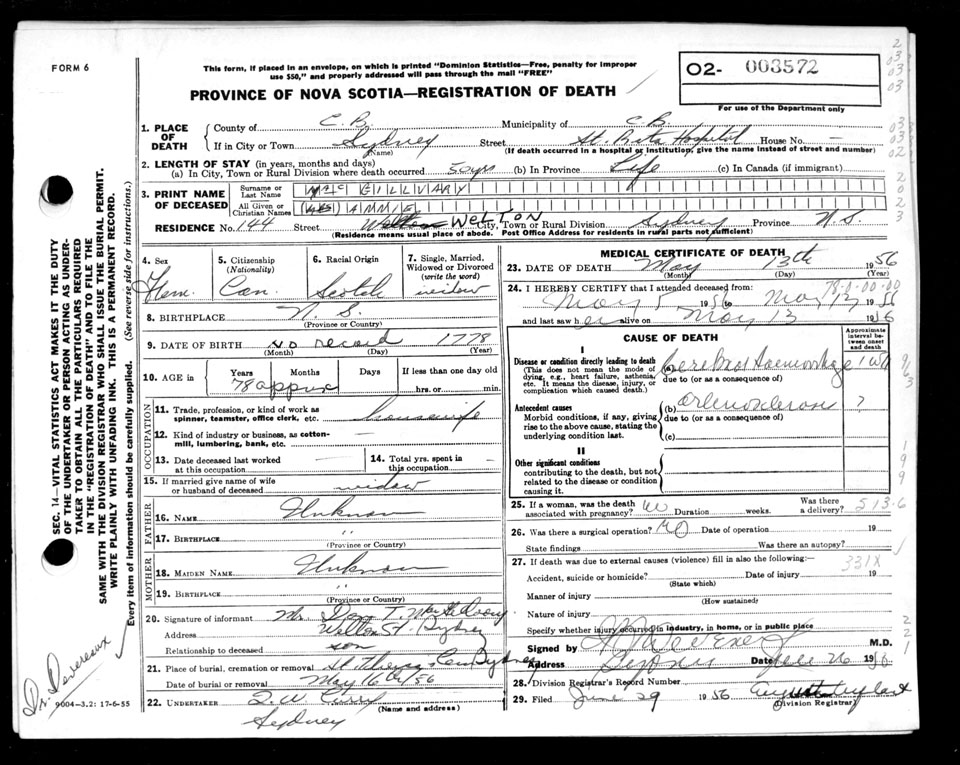 FORM 6
This form, if placed in an envelope, on which is printed "Dominion Statistics—Free, penalty for improper
use $50," and properly addressed will pass through the mail "FREE"
PROVINCE OF NOVA SCOTIA—REGISTRATION OF DEATH
O2- 003572
For use of the Department only
1. PLACE OF DEATH
County of C.B. Municipality of C.B.
If in City or Town Sydney Street St. Rita Hospital House No. —
(Name) (If death occurred in a hospital or institution, give the name instead of street and number)
2. LENGTH OF STAY (in years, months and days)
(a) In City, Town or Rural Division where death occurred 50 yrs (b) In Province Life (c) In Canada (if immigrant)
3. PRINT NAME OF DECEASED
Surname or Last Name McGILLIVARY
All Given or Christian Names (MRS) ANNIE
RESIDENCE No. 144 Street WELTON City, Town or Rural Division Sydney Province N.S.
(Residence means usual place of abode. Post Office Address for residents in rural parts not sufficient)
4. Sex Fem.
5. Citizenship (Nationality) Can.
6. Racial Origin Scotch
7. Single, Married, Widowed or Divorced (write the word) widow
8. BIRTHPLACE N.S.
(Province or Country)
9. DATE OF BIRTH no record 1778
(Month) (Day) (Year)
10. AGE in Years Months Days If less than one day old
78 approx hrs. or min.
OCCUPATION
11. Trade, profession, or kind of work as spinner, teamster, office clerk, etc. housewife
12. Kind of industry or business, as cotton-mill, lumbering, bank, etc. —
13. Date deceased last worked at this occupation —
14. Total yrs. spent in this occupation —
15. If married give name of wife or husband of deceased widow
FATHER
16. NAME Unknown
17. BIRTHPLACE "
(Province or Country)
MOTHER
18. MAIDEN NAME Unknown
19. BIRTHPLACE "
(Province or Country)
20. Signature of informant Mr. Dan T.
Address Welton St. Sydney
Relationship to deceased son
21. Place of burial, cremation or removal Sydney
Date of burial or removal May 16th/56
22. UNDERTAKER
(Name and address)
Sydney
MEDICAL CERTIFICATE OF DEATH
23. DATE OF DEATH May 13th 1956
(Month) (Day) (Year)
24. I HEREBY CERTIFY that I attended deceased from: 78-0-00-00
May 5 1956 to May 13 1956
and last saw her alive on May 13 1956
CAUSE OF DEATH
Approximate interval between onset and death
I
Disease or condition directly leading to death
(This does not mean the mode of dying, e.g., heart failure, asthenia, etc. It means the disease, injury, or complication which caused death.)
(a) Cerebral Haemorrhage 1 wk
due to (or as a consequence of)
Antecedent causes
Morbid conditions, if any, giving rise to the above cause, stating the underlying condition last.
(b) ?
due to (or as a consequence of)
(c)
II
Other significant conditions
contributing to the death, but not related to the disease or condition causing it.
25. If a woman, was the death associated with pregnancy? no Duration weeks. Was there a delivery? 513-6
26. Was there a surgical operation? NO Date of operation 19
State findings Was there an autopsy?
27. If death was due to external causes (violence) fill in also the following: 331X
Accident, suicide or homicide? Date of injury 19
(State which)
Manner of injury
(How sustained)
Nature of injury
Specify whether injury occurred in industry, in home, or in public place
Signed by M.D.
Address Sydney Date 26 1956
28. Division Registrar's Record Number
29. Filed June 29 1956
(Division Registrar)
SEC. 14—VITAL STATISTICS ACT MAKES IT THE DUTY
OF THE UNDERTAKER OR PERSON ACTING AS UNDER-
TAKER TO OBTAIN ALL THE PARTICULARS REQUIRED
IN THE "REGISTRATION OF DEATH" AND TO FILE THE
SAME WITH THE DIVISION REGISTRAR WHO SHALL ISSUE THE BURIAL PERMIT.
WRITE PLAINLY WITH UNFADING INK. THIS IS A PERMANENT RECORD.
Every item of information should be carefully supplied. (See reverse side for instructions.)
Dr. Devereaux
9004-3.2: 17-6-55